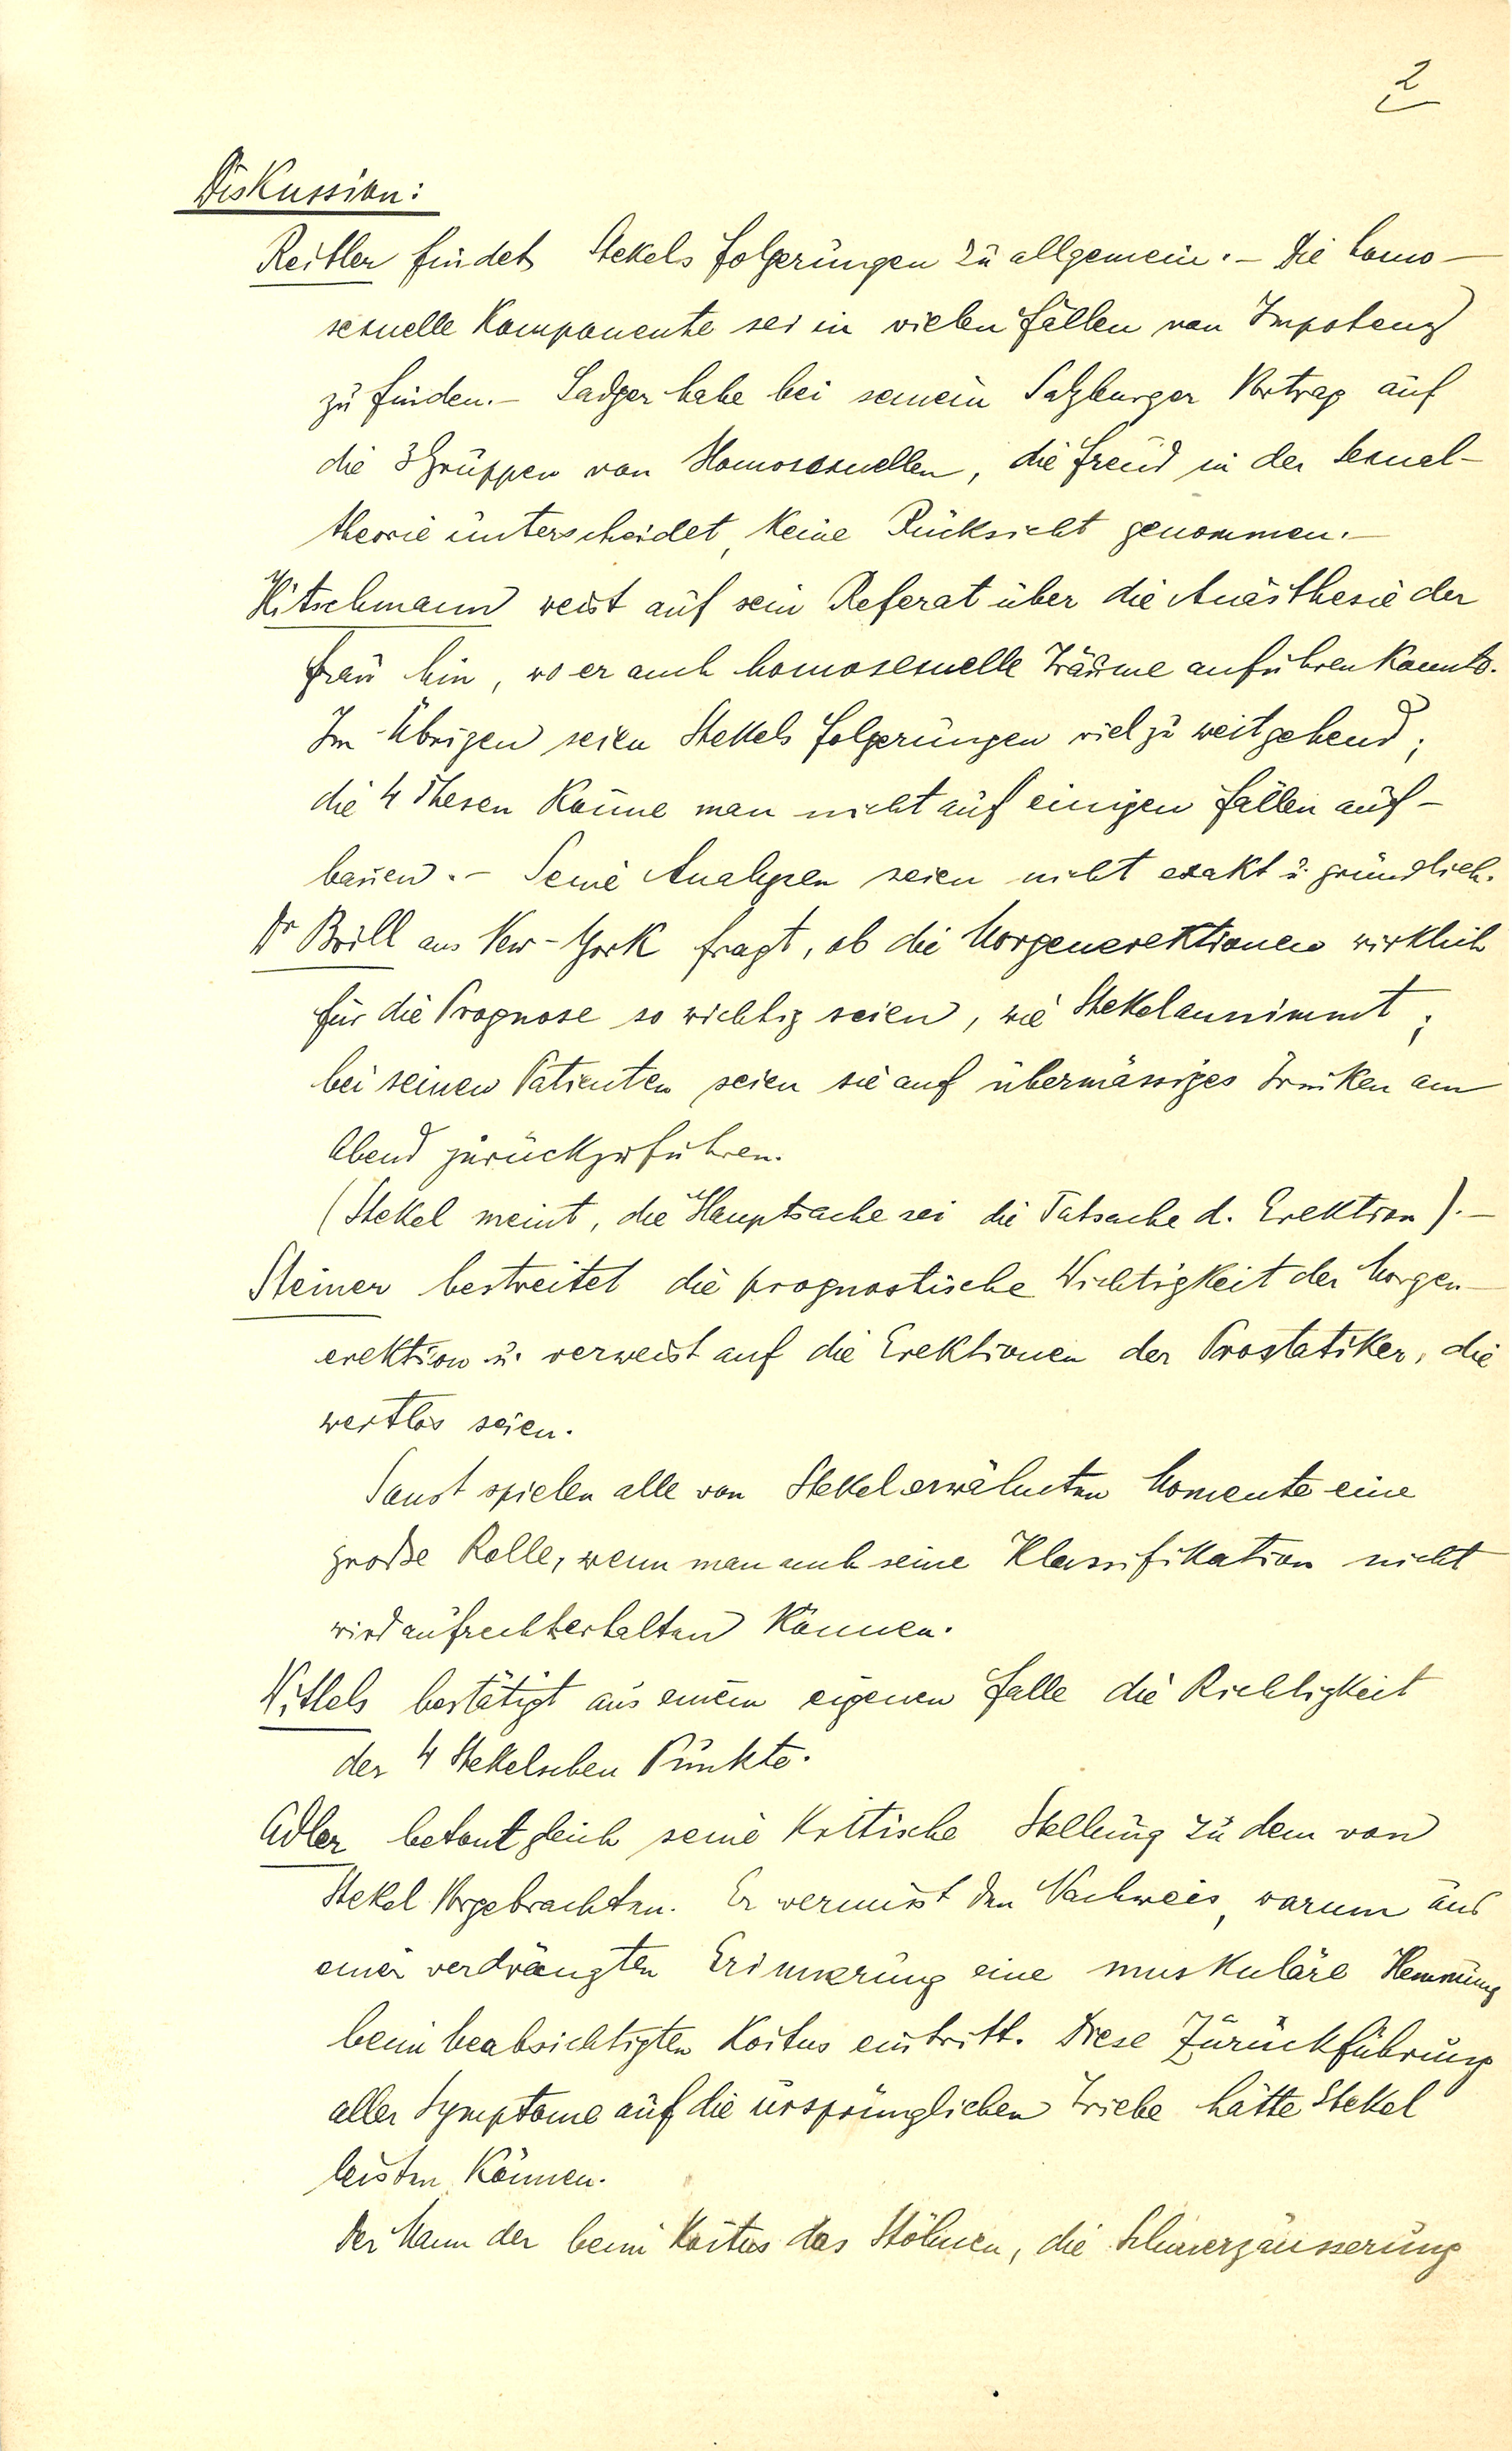 2
Diskussion:
Reitler findet Stekels Folgerungen zu allgemein. – Die homo-
sexuelle Komponente sei in vielen Fällen von Impotenz
zu finden. – Sadger habe bei seinem Salzburger Vortrag auf
die 3 Gruppen von Homosexuellen, die Freud in der Sexual-
theorie unterscheidet, keine Rücksicht genommen. –
Hitschmann weist auf sein Referat über die Anästhesie der
Frau hin, wo er auch homosexuelle Träume anführen konnte.
Im Übrigen seien Stekels Folgerungen viel zu weitgehend;
die 4 Thesen könne man nicht auf einigen Fällen auf-
bauen. – Seine Analysen seien nicht exakt u. gründlich.
Dr Brill aus New-York fragt, ob die Morgenerektionen wirklich
für die Prognose so wichtig seien, wie Stekel annimmt;
bei seinen Patienten seien sie auf übermässiges Trinken am
Abend zurückzuführen.
(Stekel meint, die Hauptsache sei die Tatsache d. Erektion). –
Steiner bestreitet die prognostische Wichtigkeit der Morgen-
erektion u. verweist auf die Erektionen der Prostatiker, die
wertlos seien.
Sonst spielen alle von Stekel erwähnten Momente eine
große Rolle, wenn man auch seine Klassifikation nicht
wird aufrechterhalten können.
Wittels bestätigt aus einem eigenen Falle die Richtigkeit
der 4 Stekelschen Punkte.
Adler betont gleich seine kritische Stellung zu dem von
Stekel Vorgebrachten. Er vermisst den Nachweis, warum aus
einer verdrängten Erinnerung eine muskuläre Hemmung
beim beabsichtigten Koitus eintritt. Diese Zurückführung
aller Symptome auf die ursprünglichen Triebe hätte Stekel
leisten können.
Der Mann der beim Koitus das Stöhnen, die Schmerzäusserung